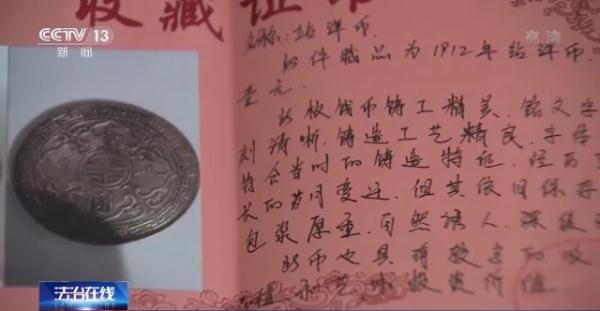 CCTV 13
新闻
高清
收藏证书
名称：站洋币
此件藏品为1912年站洋币
壹元.
此枚钱币铸工精美,铭文字
刻清晰.铸造工艺精良.字
符合当时的铸造特征.经历了
长的岁月变迁.但其依旧保存
包浆厚重.自然诱人.深
此币也具有较高的收
值和艺术投资价值.
壹
圆
法治在线